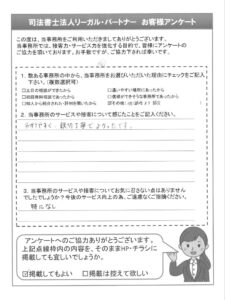 司法書士法人リーガル・パートナー お客様アンケート
この度は、当事務所をご利用いただきましてありがとうございます。
当事務所では、接客力・サービス力を強化する目的で、皆様にアンケートの
ご協力を頂いております。お手数ですが、ご協力下されば幸いです。
1. 数ある事務所の中から、当事務所をお選びいただいた理由にチェックをご記入
下さい。（複数選択可）
□土日の相談ができたから
□通いやすい場所にあったから
□初回無料相談であったから
□価格ができそうな事務所であったから
□知人から紹介された・評判を聞いたから
☑その他
2. 当事務所のサービスや接客について感じたことをご記入ください。
分かりやすく、親切丁寧でよかったです。
3. 当事務所のサービスや接客についてお気に召さない点はありません
でしたでしょうか？今後のサービス向上の為、ご遠慮なくご指摘ください。
特になし
アンケートへのご協力ありがとうございます。
上記点線枠内の内容を、そのままHP・チラシに
掲載しても宜しいでしょうか。
☑掲載してもよい □掲載は控えて欲しい